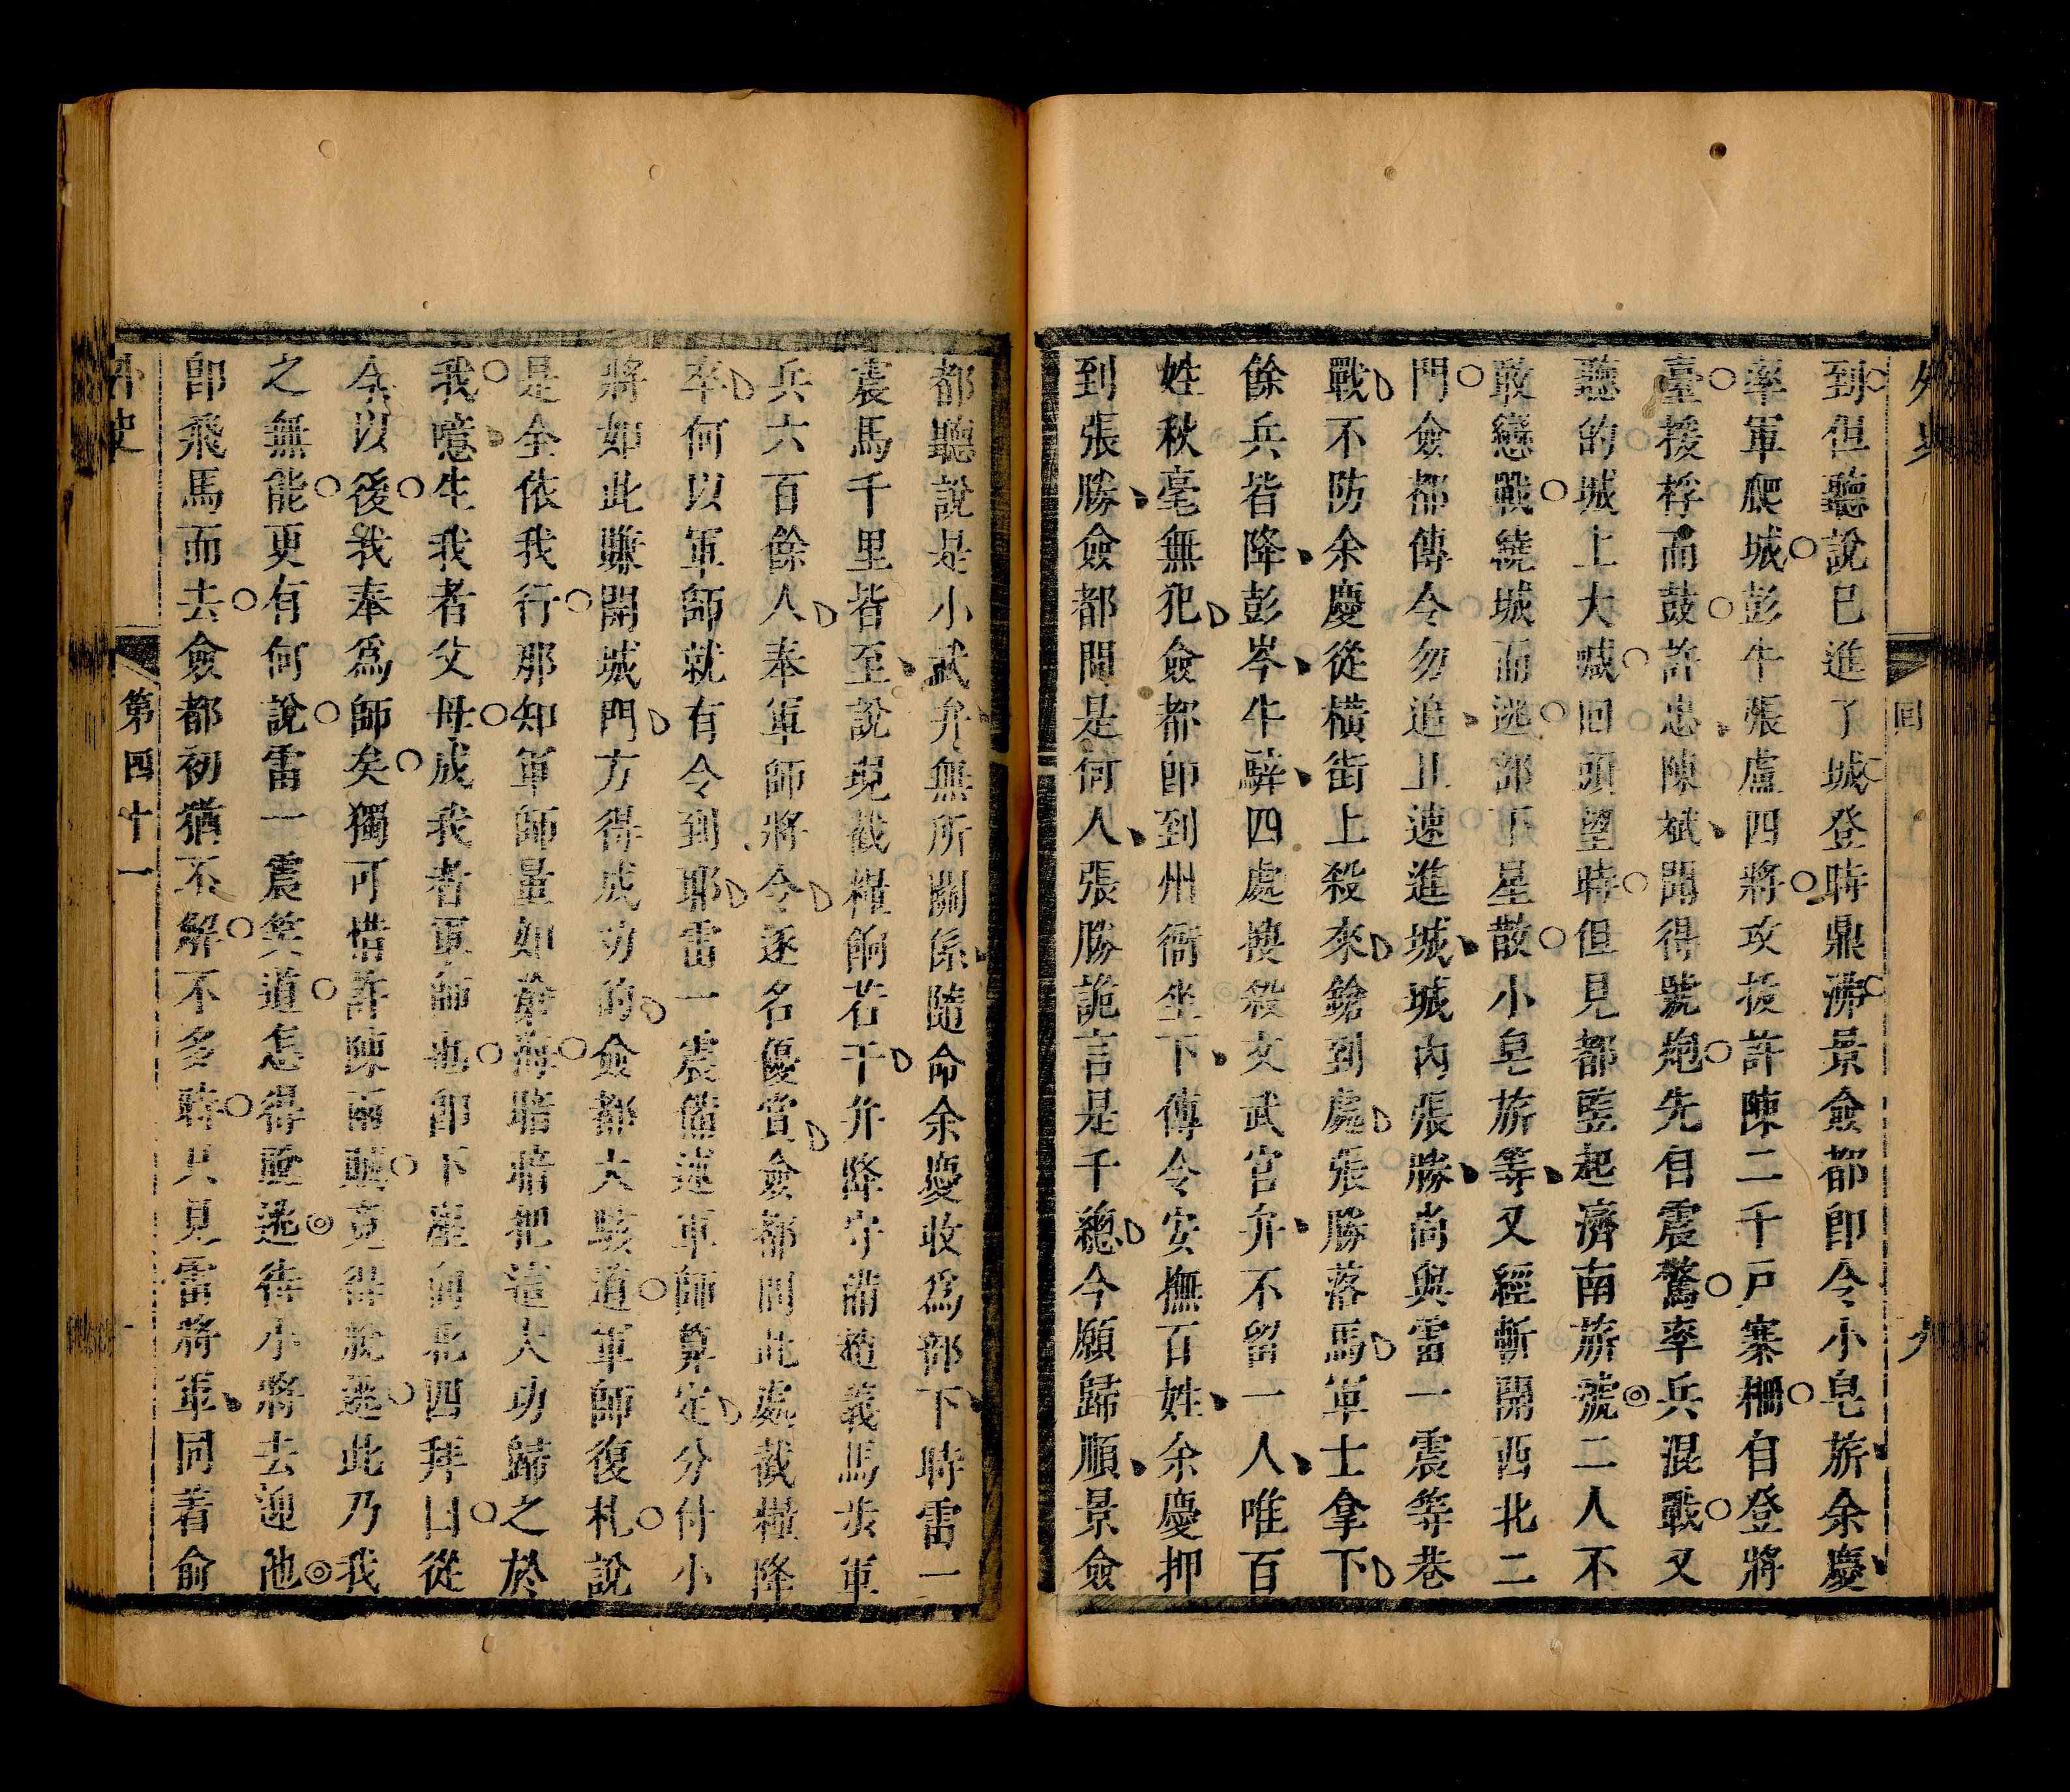 外史
回
九
到但聽說已進了城登時鼎沸景僉都即令小皂旂余慶
率軍爬城彭牛張盧四將攻拔許陳二千戶寨柵自登將
臺援桴而鼓許忠陳斌聞得號炮先自震驚率兵混戰又
聽的城上大喊回頭望時但見都豎起濟南旂號二人不
敢戀戰繞城而逃部下星散小皂旂等又經斬開西北二
門僉都傳令勿追且速進城城內張勝尚與雷一震等巷
戰不防余慶從橫街上殺來鎗到處張勝落馬軍士拿下
餘兵皆降彭岑牛騂四處搜殺文武官弁不留一人唯百
姓秋毫無犯僉都即到州衙坐下傳令安撫百姓余慶押
到張勝僉都問是何人張勝詭言是千總今願歸順景僉
都聽說是小武弁無所關係隨命余慶收爲部下時雷一
震馬千里皆至說現截糧餉若干并降守備趙義馬步軍
兵六百餘人奉軍師將令逐名優賞僉都問此處截糧降
卒何以軍師就有令到耶雷一震備述軍師算定分付小
將如此賺開城門方得成功的僉都大駭道軍師復札說
是全依我行那知軍師量如滄海暗暗把這大功歸之於
我噫生我者父母成我者軍師也即下座向北四拜曰從
今以後我奉爲師矣獨可惜許陳兩賊竟得脫逃此乃我
之無能更有何說雷一震笑道怎得脫逃待小將去迎他
即飛馬而去僉都初猶不解不多時只見雷將軍同着俞
外史
第四十一